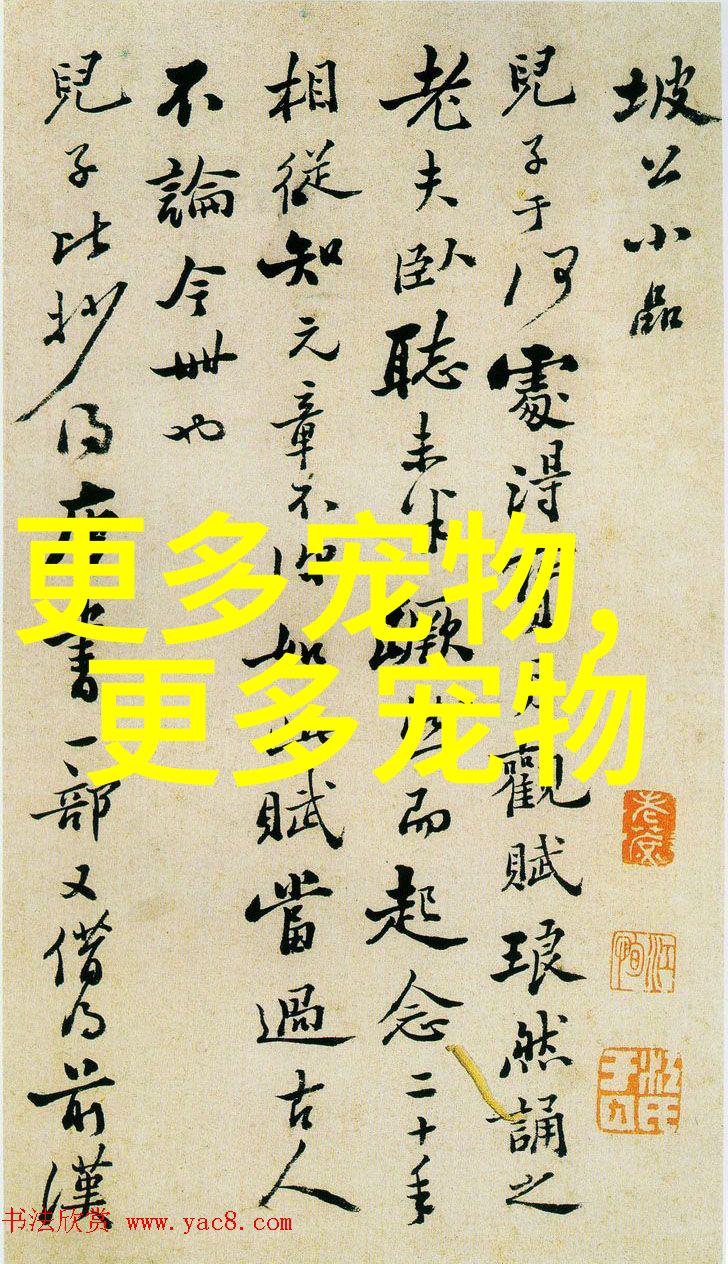 坡公小品
兒子于何處得月觀賦琅然誦之
老夫臥聽未半蹶然而起念二十年
相從知元章不如此賦當過古人
不論今世也
兒子比抄得唐書一部又借得前漢
更多宠物,
更多宠物
书法欣赏 www.yac8.com